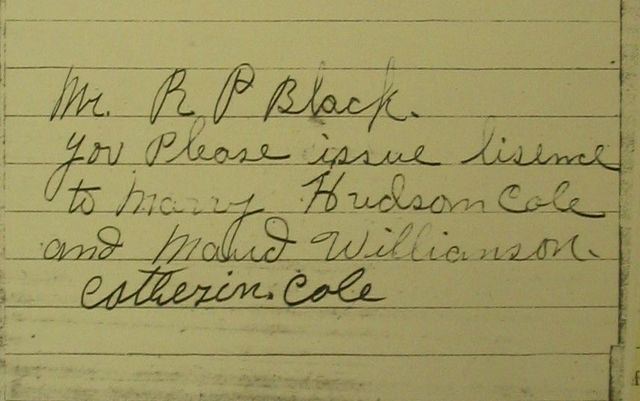 Mr. R P Black.
you Please issue lisence
to Marry Hudson Cole
and Maud Willianson.
Catherin. Cole